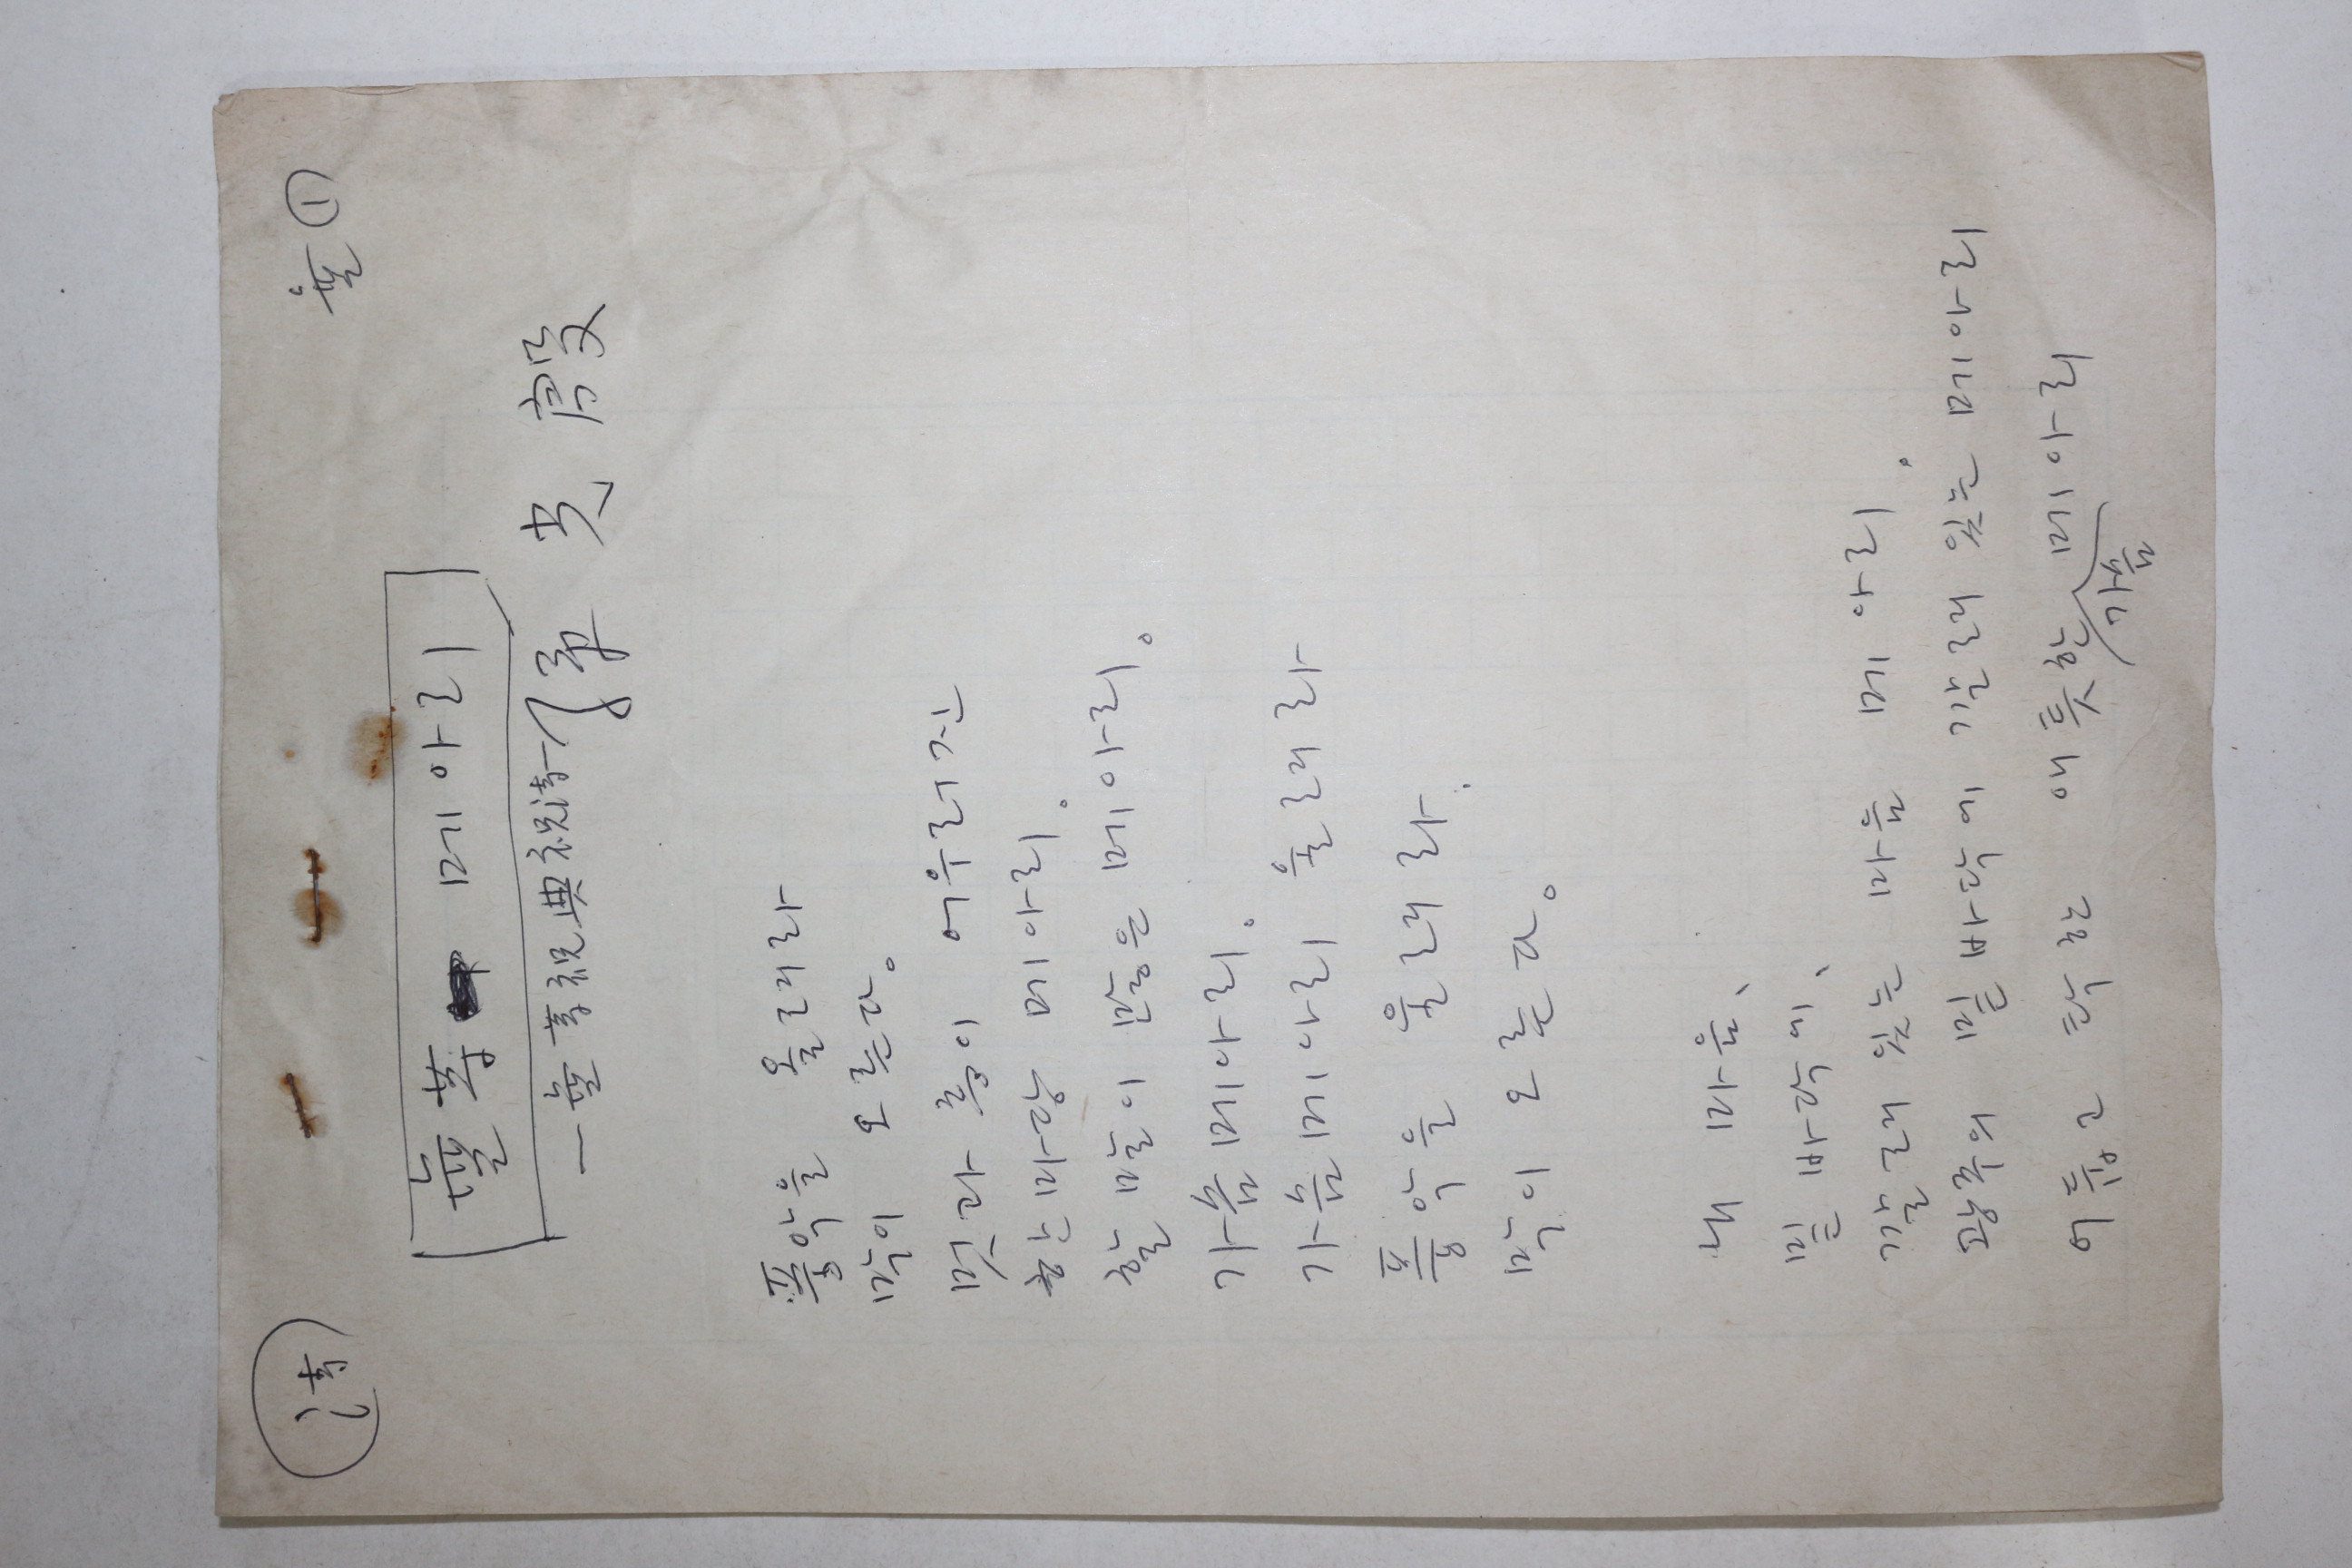 詩
無 ①
無等 메아리
—無等祝典祝詩—
孫光殷
풍악을 올려라
막이 오른다。
멋과 흥이 어우러진
한마당 메아리.
할 말이 많은 메아리。
가슴메아리.
가슴메아리 울려라
풍악을 울려라.
막이 오른다。
내 마음、
밑바닥에、
깔려 있는 마음 메아리.
광주의 밑바닥에 깔려 있는 메아리
어둡고 탁한 애틋한 메아리
가슴